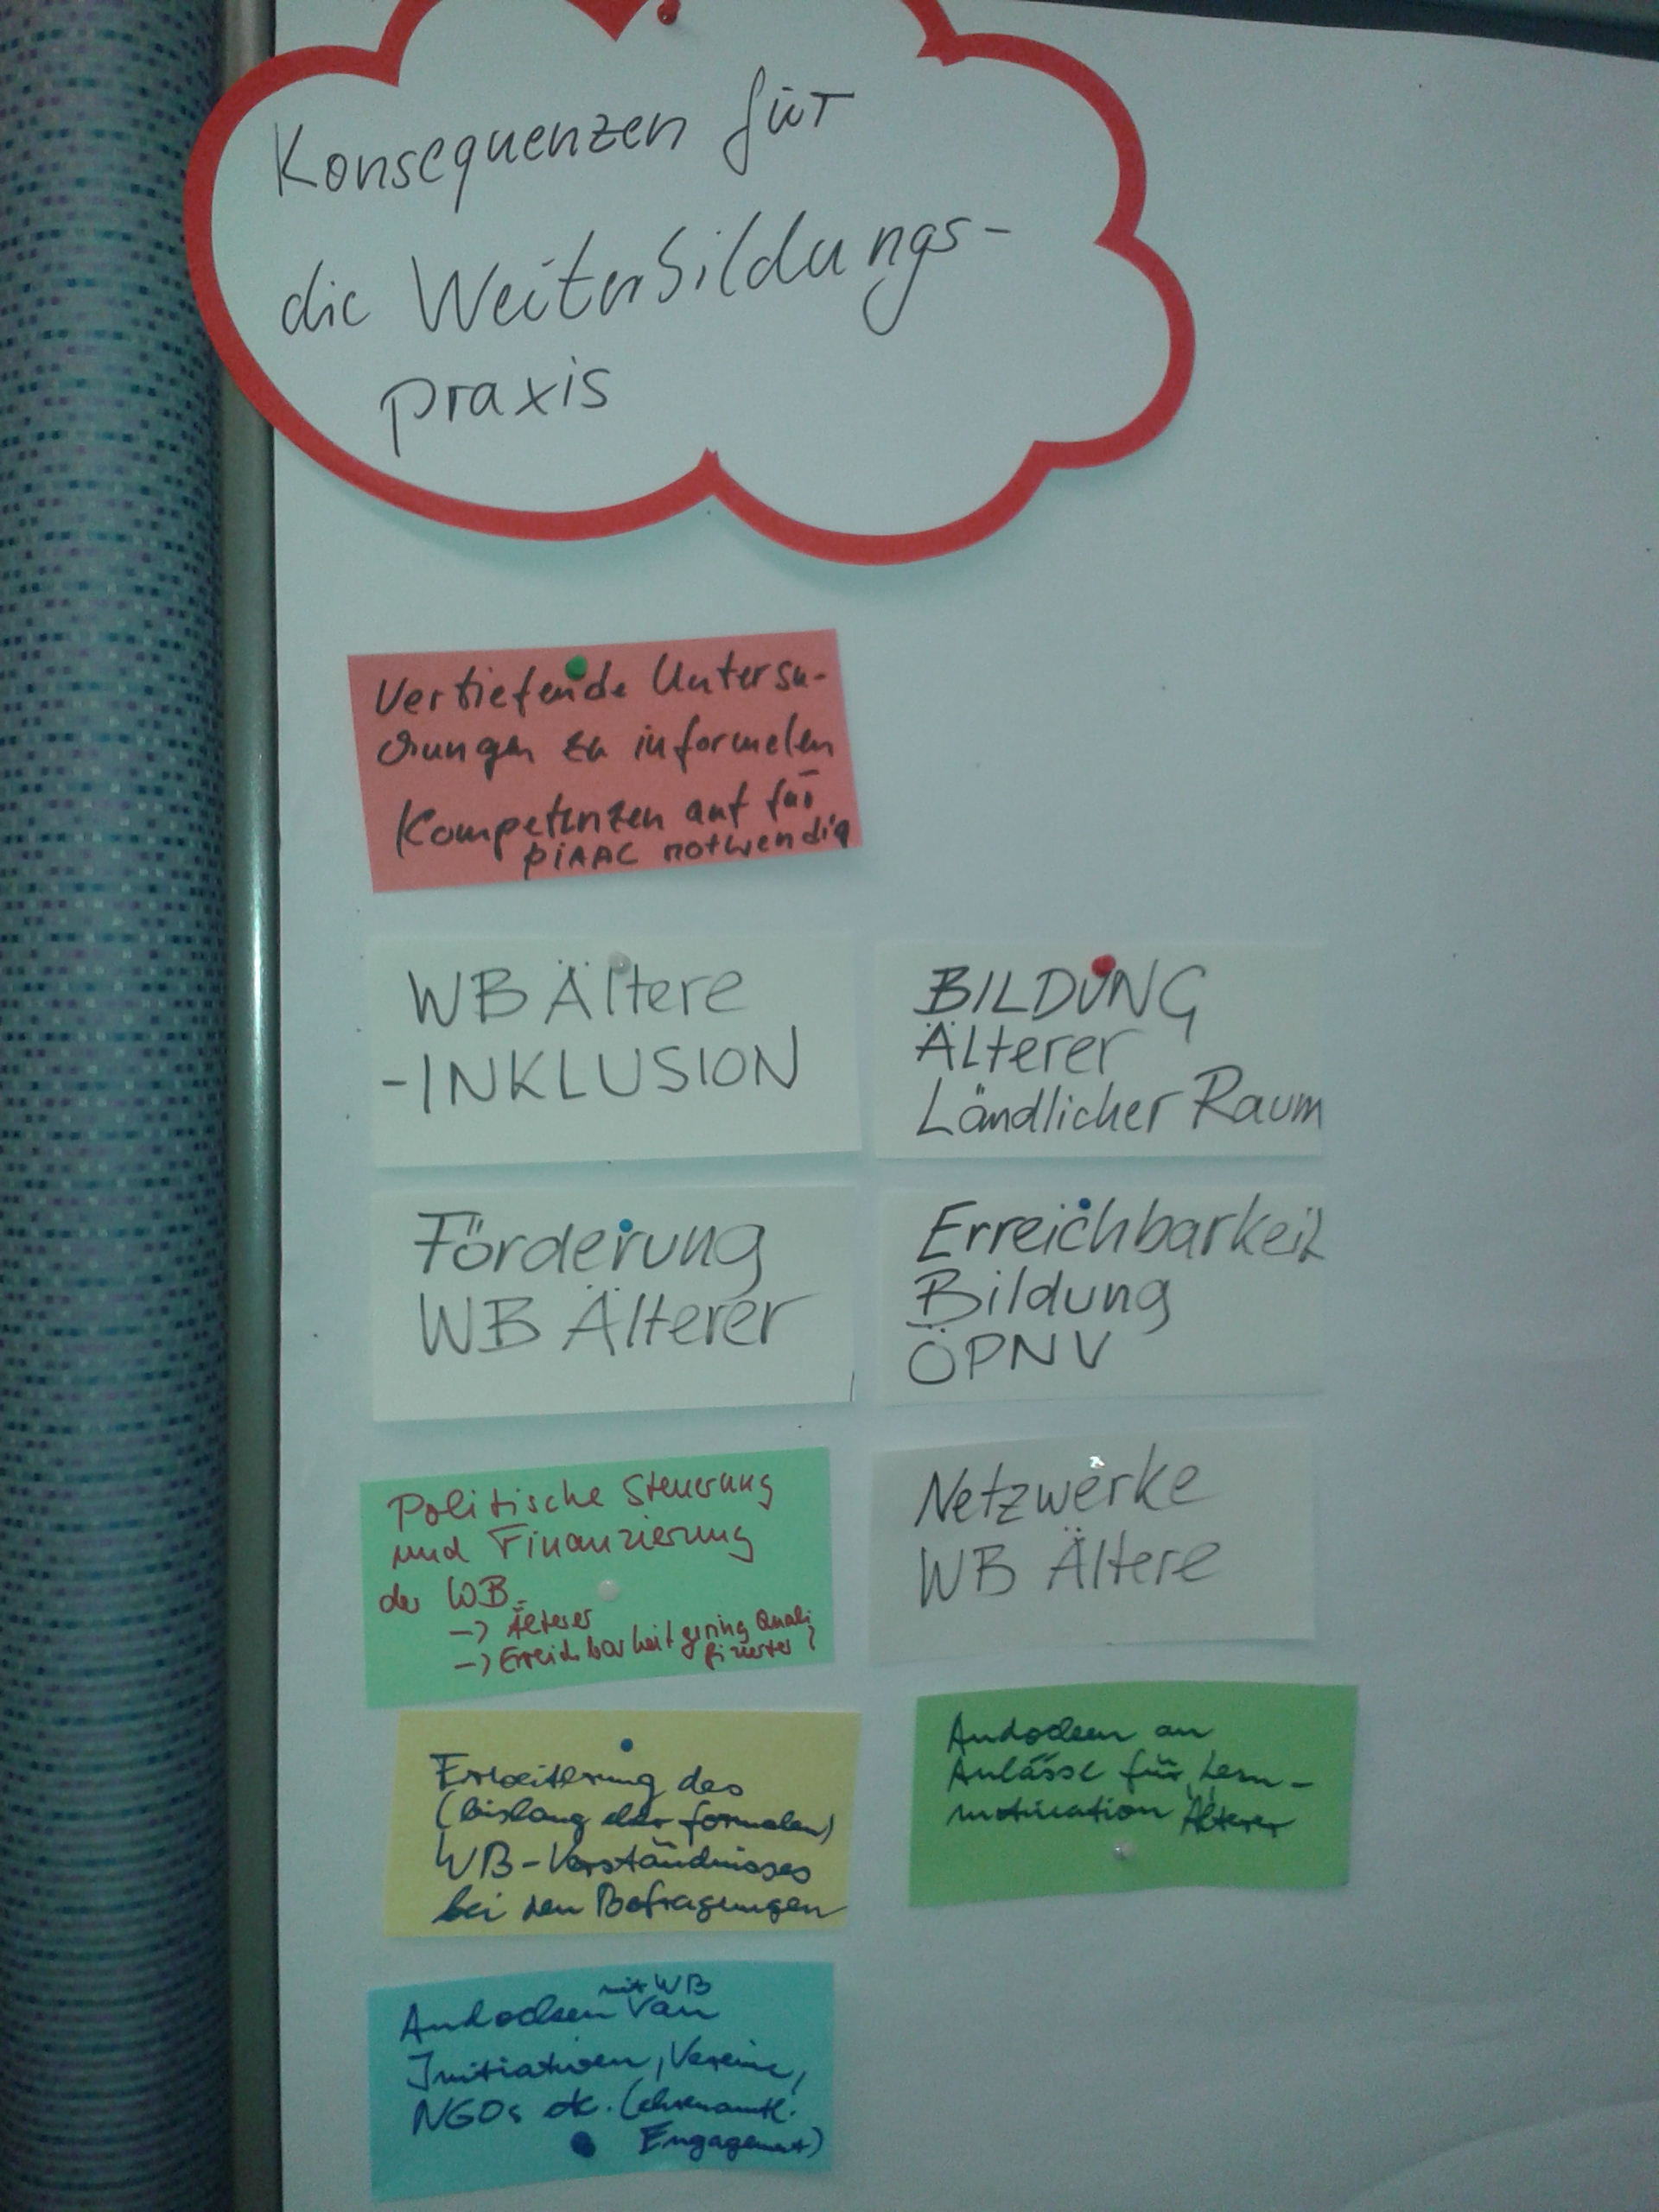 Konsequenzen für
die Weiterbildungs-
praxis
Vertiefende Untersu-
chungen zu informelen
Kompetenzen auf für
PIAAC notwendig
WB Ältere
-INKLUSION
BILDUNG
Älterer
Ländlicher Raum
Förderung
WB Älterer
Erreichbarkeit
Bildung
ÖPNV
Politische Steuerung
und Finanzierung
der WB
-> Älterer
-> Erreichbarkeit gering Quali
fizierter?
Netzwerke
WB Ältere
Erweiterung des
(bislang formalen)
WB-Verständnisses
bei den Befragungen
Andocken an
Anlässe für Lern-
motivation Älterer
mit WB
Andocken an
Initiativen, Vereine,
NGOs etc. (ehrenamtl.
Engagement)